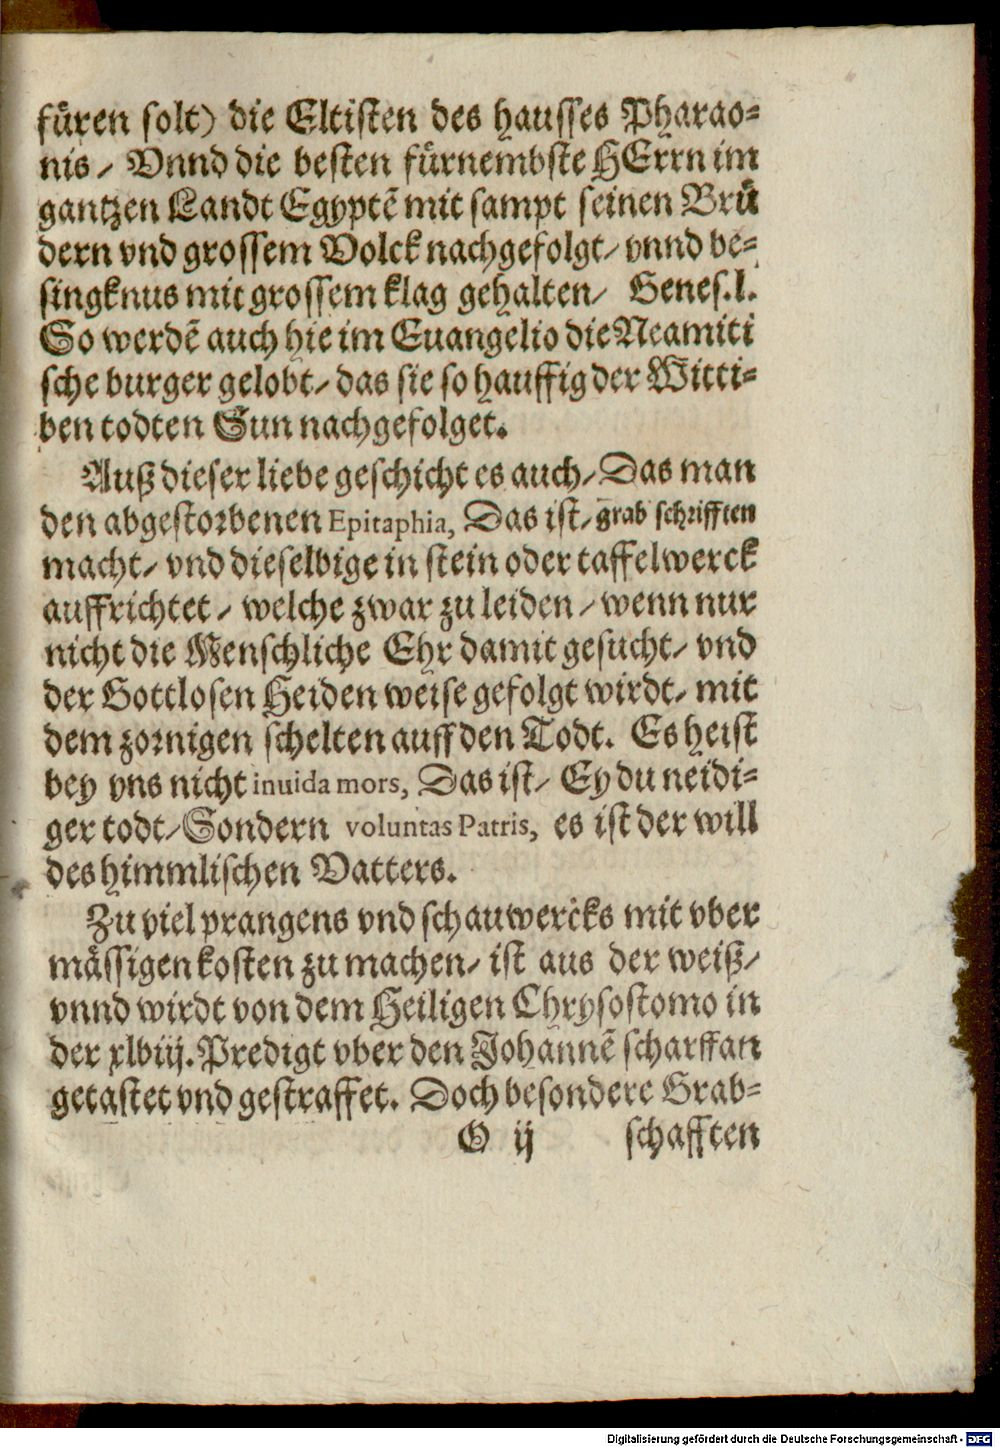 fuͤren solt) die Eltisten des hausses Pharao⸗
nis / Vnnd die besten fuͤrnembste HErrn im
gantzen Landt Egyptẽ mit sampt seinen Bruͤ
dern vnd grossem Volck nachgefolgt / vnnd be⸗
singknus mit grossem klag gehalten / Genes. l.
So werdẽ auch hie im Euangelio die Neamiti
sche burger gelobt / das sie so hauffig der Witti⸗
ben todten Sun nachgefolget.
Auß dieser liebe geschicht es auch / Das man
den abgestorbenen Epitaphia, Das ist / grab schrifften
macht / vnd dieselbige in stein oder taffelwerck
auffrichtet / welche zwar zu leiden / wenn nur
nicht die Menschliche Ehr damit gesucht / vnd
der Gottlosen Heiden weise gefolgt wirdt / mit
dem zornigen schelten auff den Todt. Es heist
bey vns nicht inuida mors, Das ist / Ey du neidi⸗
ger todt / Sondern voluntas Patris, es ist der will
des himmlischen Vatters.
Zu viel prangens vnd schauwercks mit vber
maͤssigen kosten zu machen / ist aus der weiß /
vnnd wirdt von dem Heiligen Chrysostomo in
der xlviij. Predigt vber den Johannẽ scharff an
getastet vnd gestraffet. Doch besondere Grab⸗
G ij schafften
Digitalisierung gefördert durch die Deutsche Forschungsgemeinschaft - DFG